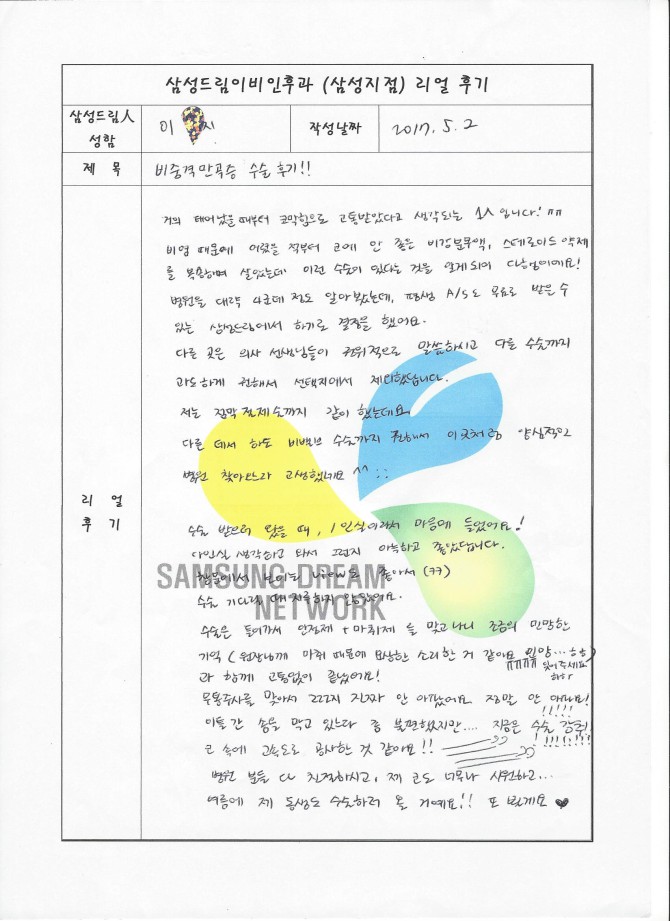 삼성드림이비인후과 (삼성지점) 리얼 후기
삼성드림人 성함
이 지
작성날짜
2017. 5. 2
제 목
비중격만곡증 수술 후기!!
리 얼
후 기
거의 태어났을 때부터 코막힘으로 고통받았다고 생각되는 1人입니다! ㅠㅠ
비염 때문에 어렸을 적부터 코에 안 좋은 비강분무액, 스테로이드 약제
를 복용하며 살았는데 이런 수술이 있다는 것을 알게되어 다행이에요!
병원을 대략 4군데 정도 알아봤는데, 평생 A/S도 무료로 받을 수
있는 삼성드림에서 하기로 결정을 했어요.
다른 곳은 의사 선생님들이 권위적으로 말씀하시고 다른 수술까지
과도하게 권해서 선택지에서 제외했답니다.
저는 점막 절제술까지 같이 했는데요
다른 데서 하도 비밸브 수술까지 권해서 이곳처럼 양심적인
병원 찾아느라 고생했네요 ^^ ::
수술 받으러 왔을 때, 1인실이라서 마음에 들었어요!
다인실 생각하고 와서 그런지 아늑하고 좋았답니다.
창문에서 보이는 view도 좋아서 (ㅋㅋ)
수술 기다릴 때 지루하지 않았어요.
SAMSUNG DREAM
NETWORK
수술은 들어가서 안정제 + 마취제 를 맞고 나니 조금의 민망한
기억 ( 원장님께 마취 때문에 요상한 소리한 거 같아요 민망... 하하)
ㅠㅠㅠㅠ 잊어주세요
하하
과 함께 고통없이 끝났어요!
무통주사를 맞아서 그런지 진짜 안 아팠어요 정말 안 아파요!
!!!!!
이틀 간 솜을 막고 있는다 좀 불편했지만.... 지금은 수술 강추!
!!!!!!!!
코 속에 고속도로 공사한 것 같아요!!
병원 분들 다 친절하시고, 제 코도 너무나 시원하고...
여름에 제 동생도 수술하러 올 거예요!! 또 뵐게요 ♥